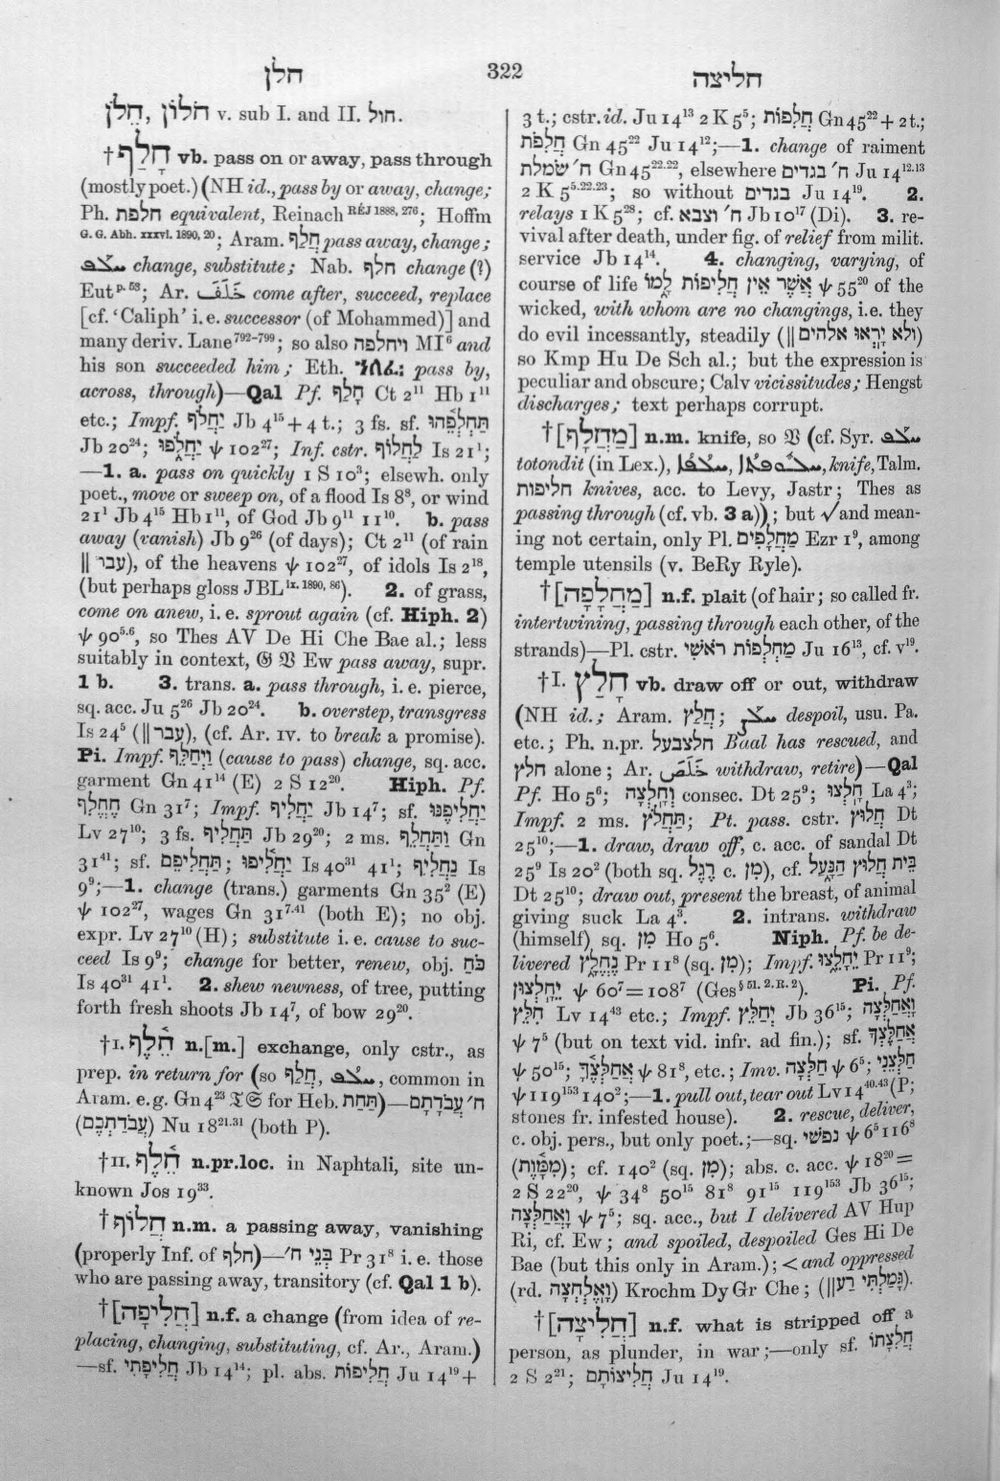 חלן
322
חליצה
חֹלוֹן, חֵלֹן v. sub I. and II. חול.
† חָלַף vb. pass on or away, pass through
(mostly poet.) (NH id., pass by or away, change;
Ph. חלפת equivalent, Reinach RÉJ 1888, 276; Hoffm
G. G. Abh. xxxvi. 1890, 20; Aram. חֲלַף pass away, change;
ܚܠܦ change, substitute; Nab. חלף change (?)
Eut p. 53; Ar. خَلَفَ come after, succeed, replace
[cf. ‘Caliph’ i.e. successor (of Mohammed)] and
many deriv. Lane 792–799; so also ויחלפה MI 6 and
his son succeeded him; Eth. ኀለፈ: pass by,
across, through)—Qal Pf. חָלַף Ct 2 11 Hb 1 11
etc.; Impf. יַחֲלֹף Jb 4 15 + 4 t.; 3 fs. sf. תַּחְלְפֵהוּ
Jb 20 24; יַחֲלֹפוּ ψ 102 27; Inf. cstr. לַחֲלוֹף Is 21 1;
—1. a. pass on quickly 1 S 10 3; elsewh. only
poet., move or sweep on, of a flood Is 8 8, or wind
21 1 Jb 4 15 Hb 1 11, of God Jb 9 11 11 10. b. pass
away (vanish) Jb 9 26 (of days); Ct 2 11 (of rain
‖ עבר), of the heavens ψ 102 27, of idols Is 2 18,
(but perhaps gloss JBL ix. 1890, 86). 2. of grass,
come on anew, i.e. sprout again (cf. Hiph. 2)
ψ 90 5.6, so Thes AV De Hi Che Bae al.; less
suitably in context, 𝔊 𝔙 Ew pass away, supr.
1 b. 3. trans. a. pass through, i.e. pierce,
sq. acc. Ju 5 26 Jb 20 24. b. overstep, transgress
Is 24 5 (‖ עבר), (cf. Ar. IV. to break a promise).
Pi. Impf. וַיְחַלֵּף (cause to pass) change, sq. acc.
garment Gn 41 14 (E) 2 S 12 20. Hiph. Pf.
הֶחֱלִף Gn 31 7; Impf. יַחֲלִיף Jb 14 7; sf. יַחֲלִיפֶנּוּ
Lv 27 10; 3 fs. תַּחֲלִיף Jb 29 20; 2 ms. וַתַּחֲלֵף Gn
31 41; sf. תַּחֲלִיפֵם; יַחֲלִיפוּ Is 40 31 41 1; נַחֲלִיף Is
9 9;—1. change (trans.) garments Gn 35 2 (E)
ψ 102 27, wages Gn 31 7.41 (both E); no obj.
expr. Lv 27 10 (H); substitute i.e. cause to suc-
ceed Is 9 9; change for better, renew, obj. כֹּחַ
Is 40 31 41 1. 2. shew newness, of tree, putting
forth fresh shoots Jb 14 7, of bow 29 20.
† I. חֵ֫לֶף n.[m.] exchange, only cstr., as
prep. in return for (so חֲלַף, ܚܠܦ, common in
Aram. e.g. Gn 4 25 𝔗𝔖 for Heb. תַּחַת)—ח׳ עֲבֹדָתָם
(עֲבֹדַתְכֶם) Nu 18 21.31 (both P).
† II. חֵ֫לֶף n.pr.loc. in Naphtali, site un-
known Jos 19 33.
† חֲלוֹף n.m. a passing away, vanishing
(properly Inf. of חלף)—בְּנֵי ח׳ Pr 31 8 i.e. those
who are passing away, transitory (cf. Qal 1 b).
† [חֲלִיפָה] n.f. a change (from idea of re-
placing, changing, substituting, cf. Ar., Aram.)
—sf. חֲלִיפָתִי Jb 14 14; pl. abs. חֲלִיפוֹת Ju 14 19 +
3 t.; cstr. id. Ju 14 13 2 K 5 5; חֲלִפוֹת Gn 45 22 + 2 t.;
חֲלִפֹת Gn 45 22 Ju 14 12;—1. change of raiment
ח׳ שׂמלת Gn 45 22.22, elsewhere ח׳ בגדים Ju 14 12.13
2 K 5 5.22.23; so without בגדים Ju 14 19. 2.
relays 1 K 5 28; cf. ח׳ וצבא Jb 10 17 (Di). 3. re-
vival after death, under fig. of relief from milit.
service Jb 14 14. 4. changing, varying, of
course of life אֲשֶׁר אֵין חֲלִיפוֹת לָמוֹ ψ 55 20 of the
wicked, with whom are no changings, i.e. they
do evil incessantly, steadily (‖ ולא יָרְאוּ אלהים)
so Kmp Hu De Sch al.; but the expression is
peculiar and obscure; Calv vicissitudes; Hengst
discharges; text perhaps corrupt.
† [מַחֲלָף] n.m. knife, so 𝔙 (cf. Syr. ܚܠܦ
totondit (in Lex.), knife, Talm.
חליפות knives, acc. to Levy, Jastr; Thes as
passing through (cf. vb. 3 a)); but √ and mean-
ing not certain, only Pl. מַחֲלָפִים Ezr 1 9, among
temple utensils (v. BeRy Ryle).
† [מַחְלָפָה] n.f. plait (of hair; so called fr.
intertwining, passing through each other, of the
strands)—Pl. cstr. מַחְלְפוֹת ראֹשִׁי Ju 16 13, cf. v 19.
† I. חָלַץ vb. draw off or out, withdraw
(NH id.; Aram. חֲלַץ; ܚܠܨ despoil, usu. Pa.
etc.; Ph. n.pr. חלצבעל Baal has rescued, and
חלץ alone; Ar. خَلَصَ withdraw, retire)—Qal
Pf. Ho 5 6; וְחָלְצָה consec. Dt 25 9; חָלְצוּ La 4 3;
Impf. 2 ms. תַּחֲלֹץ; Pt. pass. cstr. חֲלוּץ Dt
25 10;—1. draw, draw off, c. acc. of sandal Dt
25 9 Is 20 2 (both sq. מִן c. רֶגֶל), cf. בֵּית חֲלוּץ הַנַּעַל
Dt 25 10; draw out, present the breast, of animal
giving suck La 4 3. 2. intrans. withdraw
(himself) sq. מִן Ho 5 6. Niph. Pf. be de-
livered נֶחֱלָץ Pr 11 8 (sq. מִן); Impf. יֵחָלֵצוּ Pr 11 9;
יֵחָלְצוּן ψ 60 7 = 108 7 (Ges § 51. 2. R. 2). Pi. Pf.
חִלֵּץ Lv 14 43 etc.; Impf. יְחַלֵּץ Jb 36 15; וָאֲחַלְּצָה
ψ 7 5 (but on text vid. infr. ad fin.); sf. אֲחַלֶּצְךָ
ψ 50 15; אֲחַלְּצֶ֫ךָּ ψ 81 8, etc.; Imv. חַלְּצָה ψ 6 5; חַלְּצֵנִי
ψ 119 153 140 2;—1. pull out, tear out Lv 14 40.43 (P;
stones fr. infested house). 2. rescue, deliver,
c. obj. pers., but only poet.;—sq. נפשׁי ψ 6 5 116 8
(מִמָּוֶת); cf. 140 2 (sq. מִן); abs. c. acc. ψ 18 20 =
2 S 22 20, ψ 34 8 50 15 81 8 91 15 119 153 Jb 36 15;
וָאֲחַלְּצָה ψ 7 5; sq. acc., but I delivered AV Hup
Ri, cf. Ew; and spoiled, despoiled Ges Hi De
Bae (but this only in Aram.); < and oppressed
(rd. וָאֶלְחֲצָה) Krochm Dy Gr Che; (‖ גָּמַלְתִּי רַע).
† [חֲלִיצָה] n.f. what is stripped off a
person, as plunder, in war;—only sf. חֲלִצָתוֹ
2 S 2 21; חֲלִיצוֹתָם Ju 14 19.